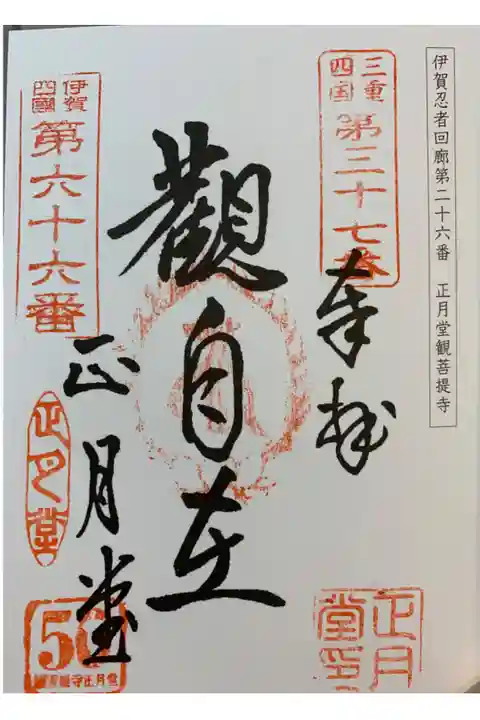 伊賀忍者回廊第二十六番　正月堂観菩提寺
三重四国
第三十七番
奉拝
觀自在
正月堂
伊賀四國
第六十六番
正月堂
正月堂印
寺正月堂